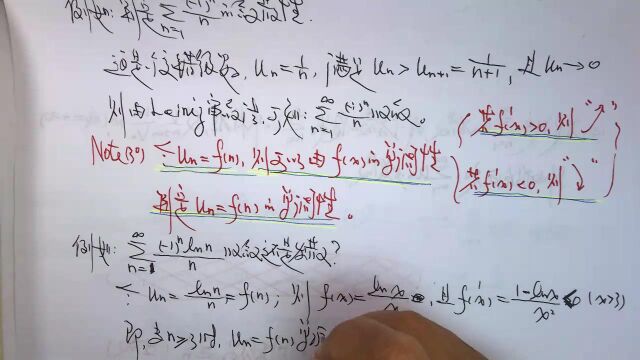 例如: 判定 \sum_{n=1}^{∞} \frac{(-1)^n}{n} 的敛散性.
这是交错级数, u_n = \frac{1}{n}, 满足 u_n > u_{n+1} = \frac{1}{n+1}, 且 u_n → 0
则由 Leibniz 审敛法, 可知: \sum_{n=1}^{∞} \frac{(-1)^n}{n} 收敛。
Note(30) ∵ u_n = f(n), 则可以由 f(x) 的单调性
判定 u_n = f(n) 的单调性。
若 f'(x) > 0, 则 “↗”
若 f'(x) < 0, 则 “↘”
例如: \sum_{n=1}^{∞} \frac{(-1)^n \ln n}{n} 收敛还是发散?
∵ u_n = \frac{\ln n}{n} = f(n); 则 f(x) = \frac{\ln x}{x}, 且 f'(x) = \frac{1 - \ln x}{x^2} < 0 (x > 3)
即, 当 n ≥ 3 时, u_n = f(n)